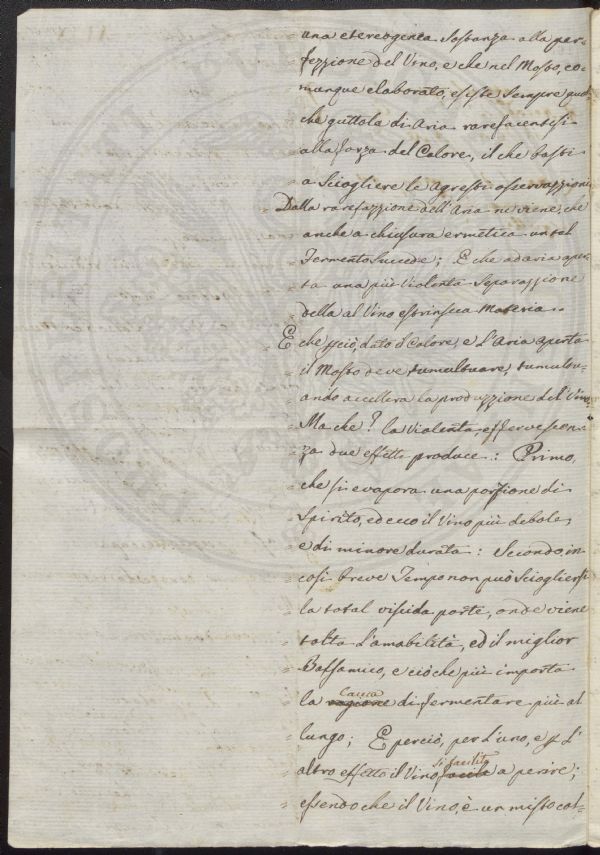 una etereogenea Sostanza alla per=
fezzione del Vino, e che nel Mosto, co=
munque elaborato, esiste Sempre qual
che guttola di Aria rarefacentesi
alla forza del Calore, il che basti
a Sciogliere le agresti osservazzioni
Dalla rarefazzione dell'Aria ne viene, che
anche a chiusura ermetica un tal
Fermento Succede; E che ad aria aper=
ta una più Violenta Separazzione
della al Vino estrinseca Materia..
E che perciò, dato il Calore, e l'Aria aperta
il Mosto deve tumultuare, tumultu=
ando accellera la produzzione del Vino.
Ma che? la Violenta effervescen=
za due effetti produce: Primo,
che si evapora una porzione di
Spirito, ed ecco il Vino più debole,
e di minore durata: Secondo in
così breve Tempo non può Sciogliersi
la total viscida parte, onde viene
tolta l'amabilità, ed il miglior
Balsamico, e ciò che più importa
la ragione di fermentare più al
lungo; E perciò, per l'uno, e p l'
altro effetto il Vino a perire;
essendo che il Vino, è un misto col=